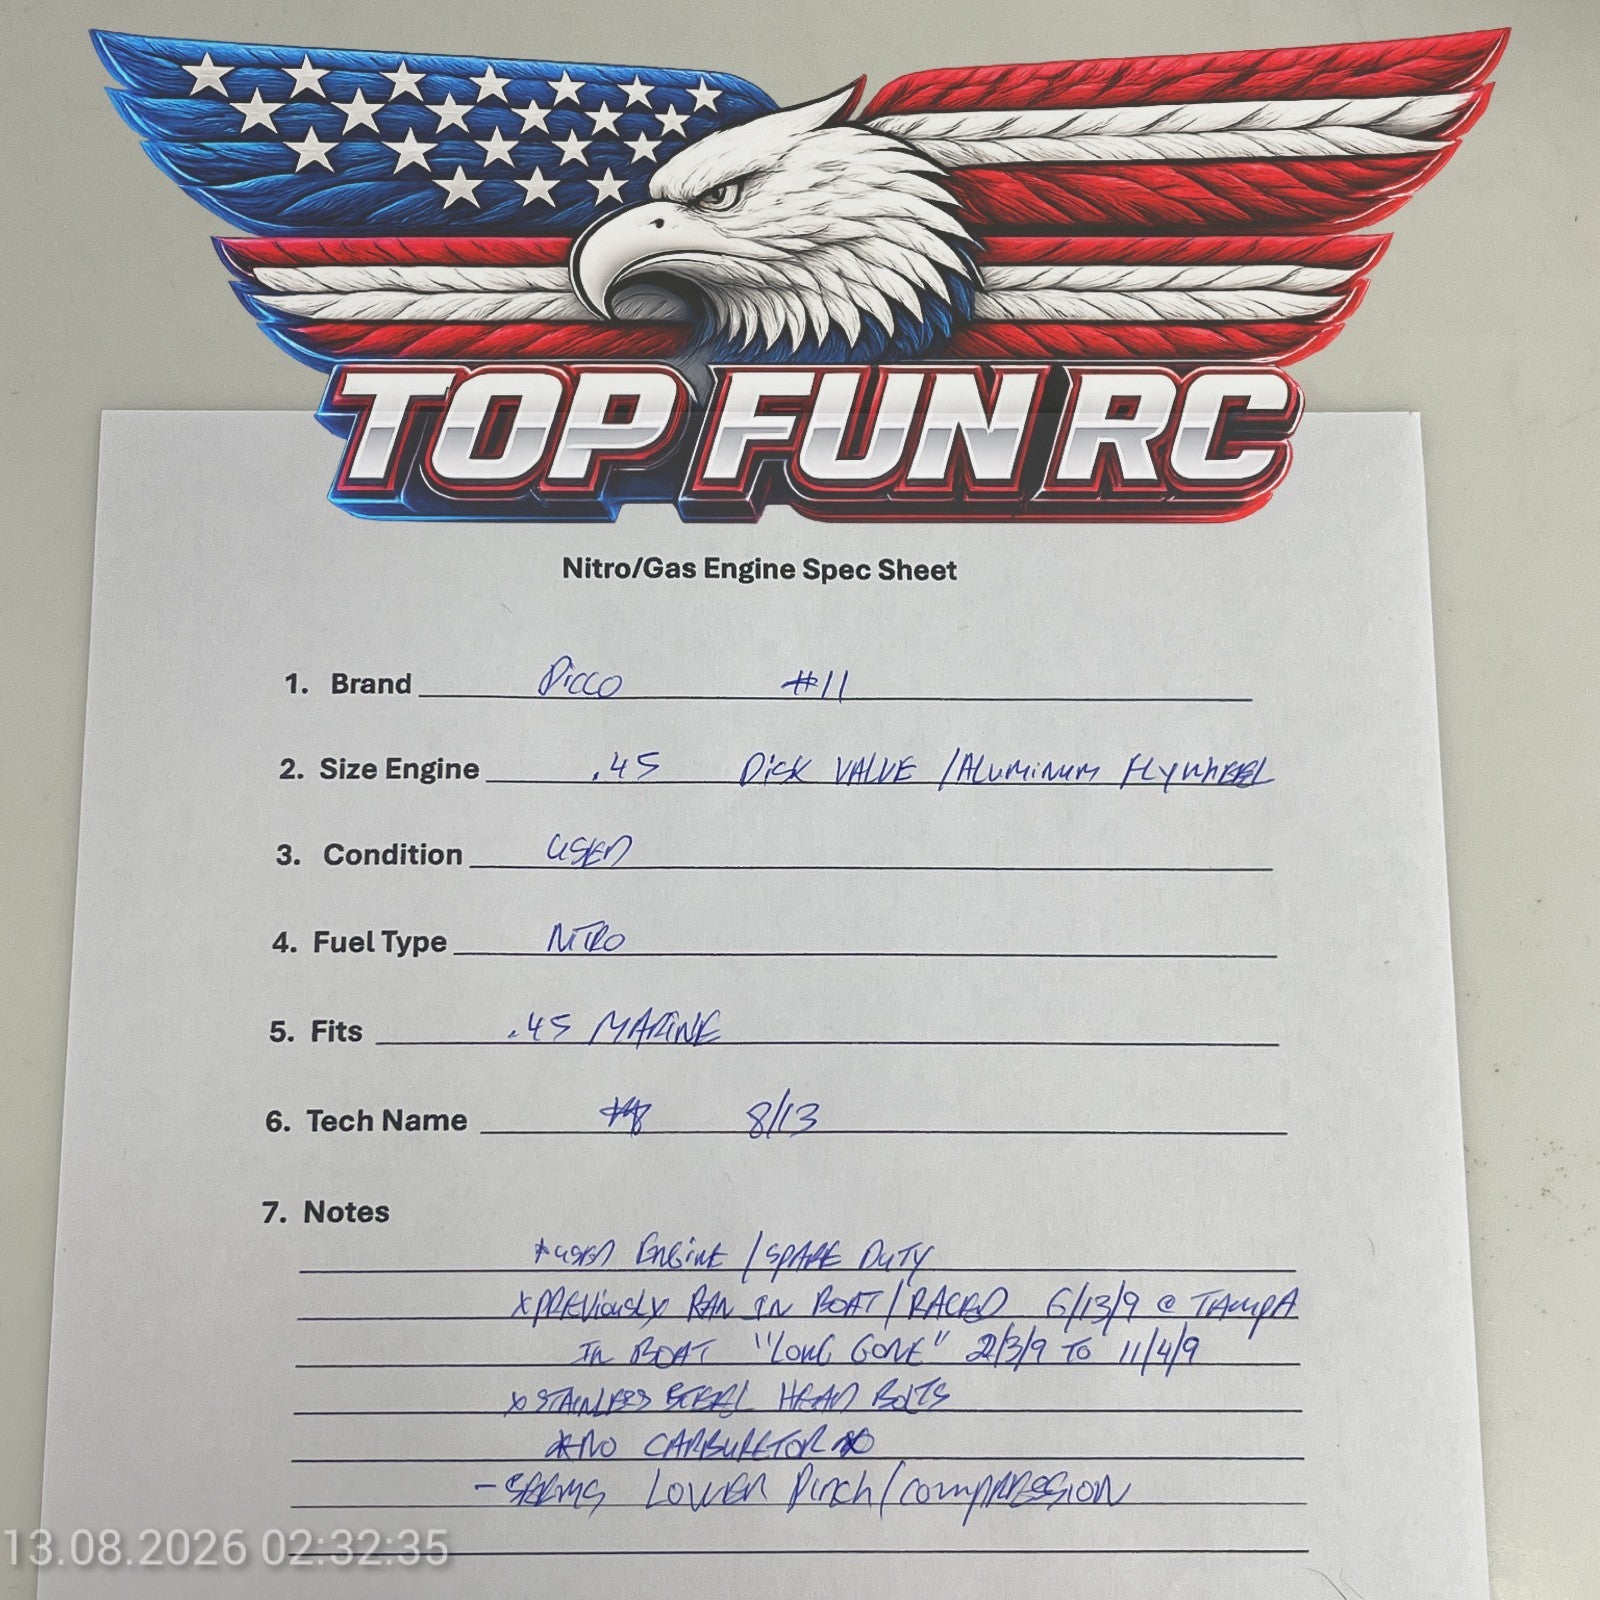 TOP FUN RC
Nitro/Gas Engine Spec Sheet
1. Brand Picco #11
2. Size Engine .45 Disk VALVE /ALuminum FLYWHEEL
3. Condition USED
4. Fuel Type NITRO
5. Fits .45 MARINE
6. Tech Name 8/13
7. Notes
*USED ENGINE / SPARE DUTY
x PREViousLY RAN IN BOAT/RACED 6/13/9 @ TAMPA
IN BOAT "LONG GONE" 2/3/9 TO 11/4/9
x STAINLESS STEEL HEAD BOLTS
*NO CARBURETOR
- SEEMS LOWER Pinch/compRESSION
13.08.2026 02:32:35